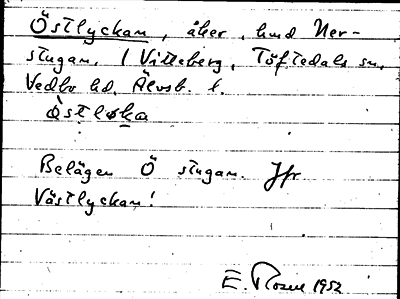 Östlyckan, åker, hmd Ner-
stugan, 1 Vitteberg, Töftedals sn,
Vedbo hd, Älvsb. l.
östløka
Belägen Ö stugan. Jfr
Västlyckan!
E. Rosell 1952